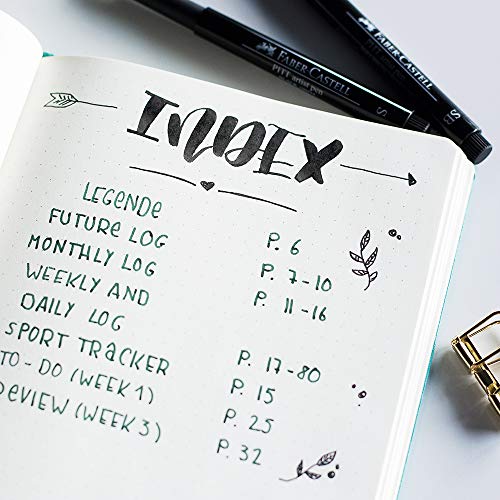 FABER-CASTELL
PITT artist pen
S
FABER-CASTELL
PITT artist pen
INDEX
LEGENDE P. 6
FUTURE LOG P. 7-10
MONTHLY LOG P. 11-16
WEEKLY AND
DAILY LOG P. 17-80
SPORT TRACKER P. 15
TO-DO (WEEK 1) P. 25
REVIEW (WEEK 3) P. 32